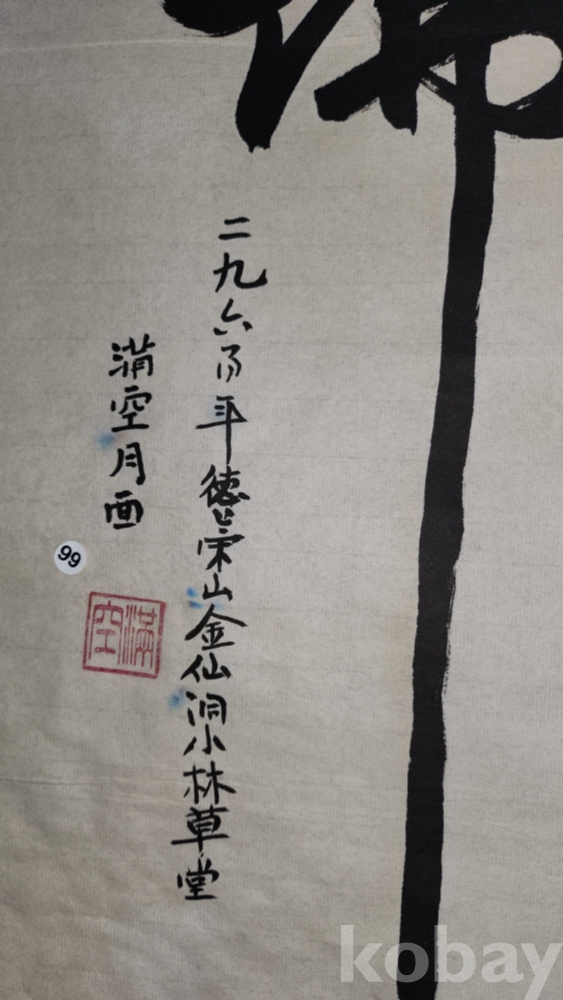 二九六年德崇山金仙洞小林草堂
满空月面
99
滿空
kobay